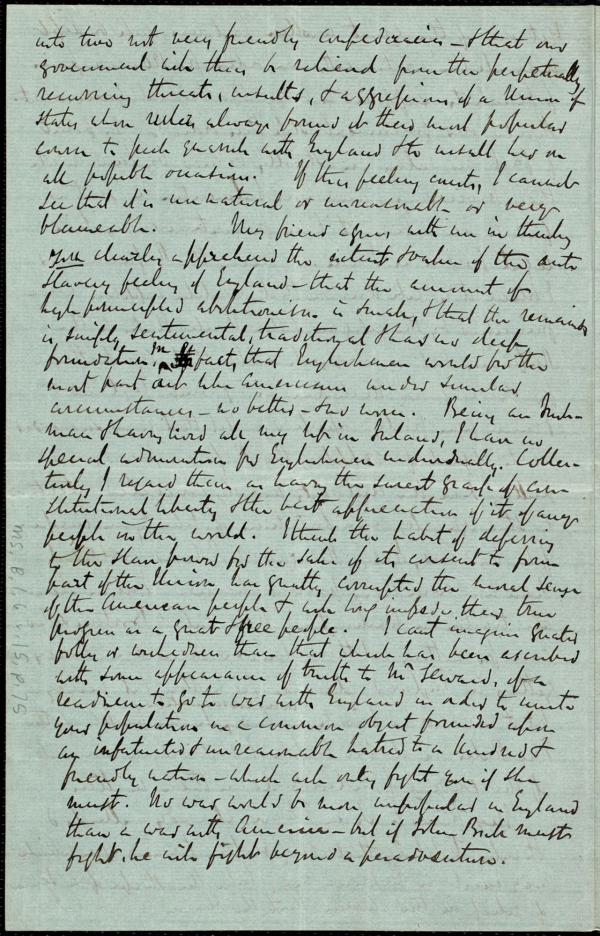 into two not very friendly confederacies – & that our
government will then be relieved from the perpetually
recurring threats, insults, & aggressions, of a Union of
states whose rulers always found it their most popular
course to pick quarrels with England & to insult her on
all possible occasions. If this feeling exists, I cannot
see that it is unnatural or unreasonable or very
blameable. My friend agrees with me in thinking
you clearly apprehend the extent & value of the anti
slavery feeling of England – that the amount of
high principled abolitionism is small, & that the remainder
is simply sentimental, traditional & has no deep
foundation in facts, that Englishmen would for the
most part act like Americans under similar
circumstances – no better – & no worse. Being an Irish-
man & having lived all my life in Ireland, I have no
special admiration for Englishmen individually. Collec-
tively I regard them as having the surest grasp of con-
stitutional liberty & the best appreciation of it of any
people in the world. I think the habit of deferring
to the slave power for the sake of its consent to form
part of the Union has greatly corrupted the moral sense
of the American people & will long impede their true
progress as a great & free people. I can't imagine greater
folly or wickedness than that which has been ascribed
with some appearance of truth to Mr Seward, of a
readiness to go to war with England in order to unite
your population in a common object founded upon
an infatuated & unreasonable hatred to a kindred &
friendly nation – which will only fight you if she
must. No war would be more unpopular in England
than a war with America – but if John Bull must
fight, he will fight beyond a peradventure.
Ms. B. 1. 6 v. 8, p. 75